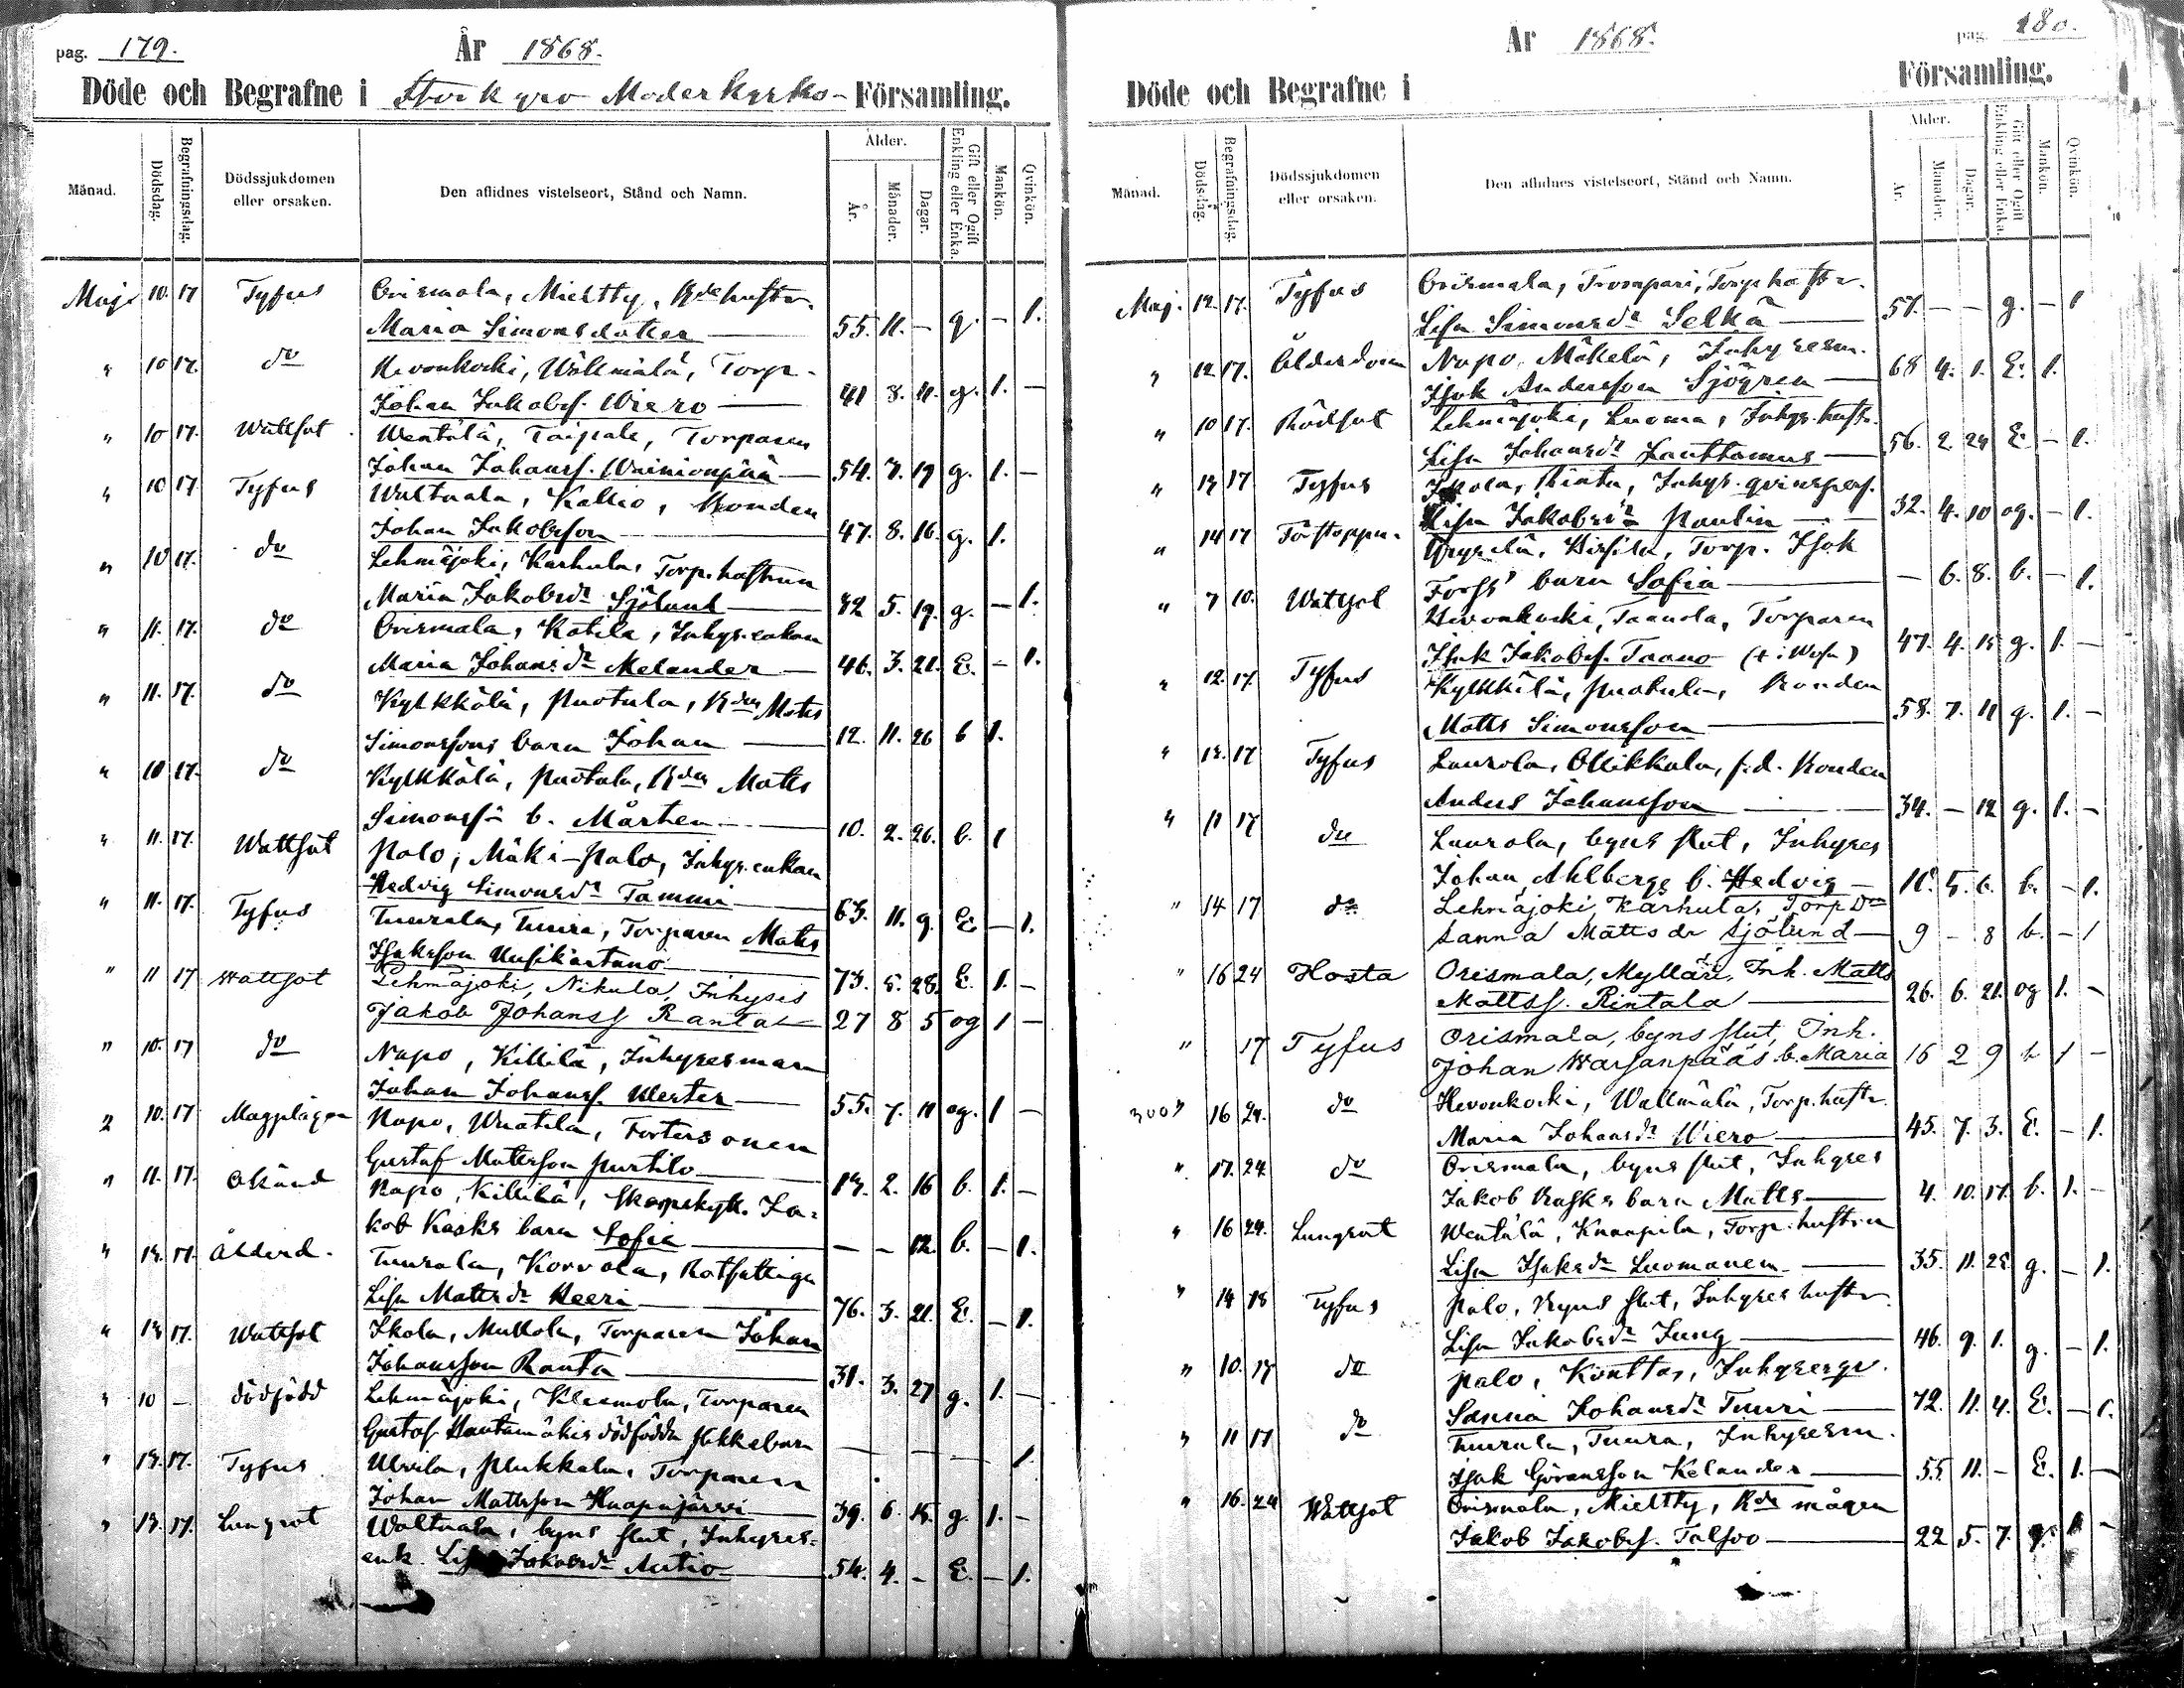 pag. 179.
År 1868.
Döde och Begrafne i Storkyro Moderkyrko- Församling.
Månad.
Dödsdag.
Begrafningsdag.
Dödssjukdomen
eller orsaken.
Den aflidnes vistelseort, Stånd och Namn.
Ålder.
År.
Månader.
Dagar.
Gift eller Ogift
Enkling eller Enka.
Mankön.
Qvinkön.
Maji 10. 17 Tyfus Orismala, Mieltty, Bdehustr.
Maria Simonsdotter 55. 11. - g. - 1.
" 10 17. do Hevonkoski, Wällmälä, Torp.
Johan Jakobss. Wiero 41 8. 11. g. 1. -
" 10 17. Wattsot Wentälä, Taipale, Torparen
Johan Johanss. Wainionpää 54. 7. 19 g. 1. -
" 10 17. Tyfus Waltaala, Kallio, Bonden
Johan Jakobsson 47. 8. 16. g. 1.
" 10 17. do Lehmäjoki, Karhula, Torp. hustrun
Maria Jakobsdr Sjölund 42 5. 19. g. - 1.
" 11. 17. do Orismala, Kotila, Inhys. enkan
Maria Johansdr Melander 46. 3. 21. E. - 1.
" 11. 17. do Kylkkälä, Puotula, Bden Matts
Simonssons barn Johan 12. 11. 26 b 1.
" 10 17. do Kylkkälä, Puotula, Bden Matts
Simonss b. Mårten 10. 2. 26. b. 1
" 11. 17. Wattsot Palo, Mäki-Palo, Inhys. enkan
Hedvig Simonsdr Tammi 63. 11. 9. E. - 1.
" 11. 17. Tyfus Tuurala, Tuura, Torparen Matts
Isaksson Uusikartano 73. 5. 28. E. 1. -
" 11 17 Wattsot Lehmäjoki, Nikula, Inhyses
Jakob Johanss Ranta 27 8 5 og 1 -
" 10. 17 do Napo, Killilä, Inhysesman
Johan Johanss. Wester 55. 7. 11 og. 1 -
" 10. 17 Magplågen Napo, Wuatila, Fostersonen
Gustaf Mattsson Purtilo 14. 2. 16 b. 1. -
" 11. 17. Okänd Napo, Killilä, Skarpskytt. Ja-
kob Kasks barn Sofia - - 12. b. - 1.
" 14. 17. Ålderd. Tuurala, Korvola, Rotfattiga
Lisa Mattsdr Heeri 76. 3. 21. E. - 1.
" 14 17. Wattsot Ikola, Mullola, Torparen Johan
Johansson Ranta 31. 3. 27 g. 1. -
" 10 - dödfödd Lehmäjoki, Klasmola, Torparen
Gustaf Hautamäkis dödfödda flickebarn - - - - 1
" 14. 17. Tyfus Ulvila, Plukkala, Torparen
Johan Mattsson Haapajärvi 39. 6. 15. g. 1. -
" 14. 17. Lungsot Waltaala, byns slut, Inhyses-
enk. Lisa Jakobsdr Autio 54. 4. - E. - 1.
År 1868.
pag. 180.
Döde och Begrafne i
Församling.
Månad.
Dödsdag.
Begrafningsdag.
Dödssjukdomen
eller orsaken.
Den aflidnes vistelseort, Stånd och Namn.
Ålder.
År.
Månader.
Dagar.
Gift eller Ogift
Enkling eller Enka.
Mankön.
Qvinkön.
Maj. 12. 17. Tyfus Orismala, Trompari, Torp. hustr.
Lisa Simonsdr Selkä 57. - - g. - 1
" 12 17. Ålderdom Napo, Mäkelä, Inhysesm.
Isak Andersson Sjögren 68 4. 1. E. 1.
" 10 17. Rödsot Lehmäjoki, Luoma, Inhys. hustr.
Lisa Johansdr Lauttamus 56. 2. 24 E. - 1.
" 14 17 Tyfus Ikola, Rinta, Inhys. qvinspers.
Lisa Jakobsdr Paulin 32. 4. 10 og. - 1.
" 14 17 Förstoppn. Torp. Isak
Forss' barn Sofia - 6. 8. b. - 1.
" 7 10. Wattsot Hevonkoski, Taanola, Torparen
Isak Jakobss. Taano (+ i Wasa) 47. 4. 15 g. 1. -
" 12. 17. Tyfus Kylkkälä, Puotula, Bonden
Matts Simonsson 58. 7. 11 g. 1. -
" 12. 17 Tyfus Laurola, Ollikkala, f.d. Bonden
Anders Johansson 34. - 12 g. 1. -
" 11 17 do Laurola, byns slut, Inhyses
Johan Ahlbergs b. Hedvig 10. 5. 6. b. - 1.
" 14 17 do Lehmäjoki, Karhula, Torp Dr
Sanna Matts dr Sjölund 9 - 8 b. - 1
" 16 24 Hosta Orismala, Mylläri, Inh. Matts
Mattss. Rintala 26. 6. 21. og 1. -
" 17 Tyfus Orismala, byns slut, Inh.
Johan Warsanpääs b. Maria 16 2 9 b 1 -
16 24. do Hevonkoski, Wallmälä, Torp. hustr.
Maria Johansdr Wiero 45. 7. 3. E. - 1.
" 17. 24. do Orismala, byns slut, Inhyses
Jakob Rasks barn Matts 4. 10. 17. b. 1. -
" 16 24. Lungsot Wentälä, Knaapila, Torp. hustrun
Lisa Isaksdr Luomanen 35. 11. 25 g. - 1.
" 14 18 Tyfus Palo, Byns slut, Inhyses hustr.
Lisa Jakobsdr Jung 46. 9. 1. g. - 1.
" 10. 17 do Palo, Konttas, Inhysesqv.
Sanna Johansdr Tuuri 72. 11. 4. E. - 1.
" 11 17 do Tuurala, Tuura, Inhysesm.
Isak Göransson Kelander 55. 11. - E. 1. -
" 16. 24 Wattsot Orismala, Mieltty, Bde mågen
Jakob Jakobss. Talsoo 22 5. 7. g. 1 -